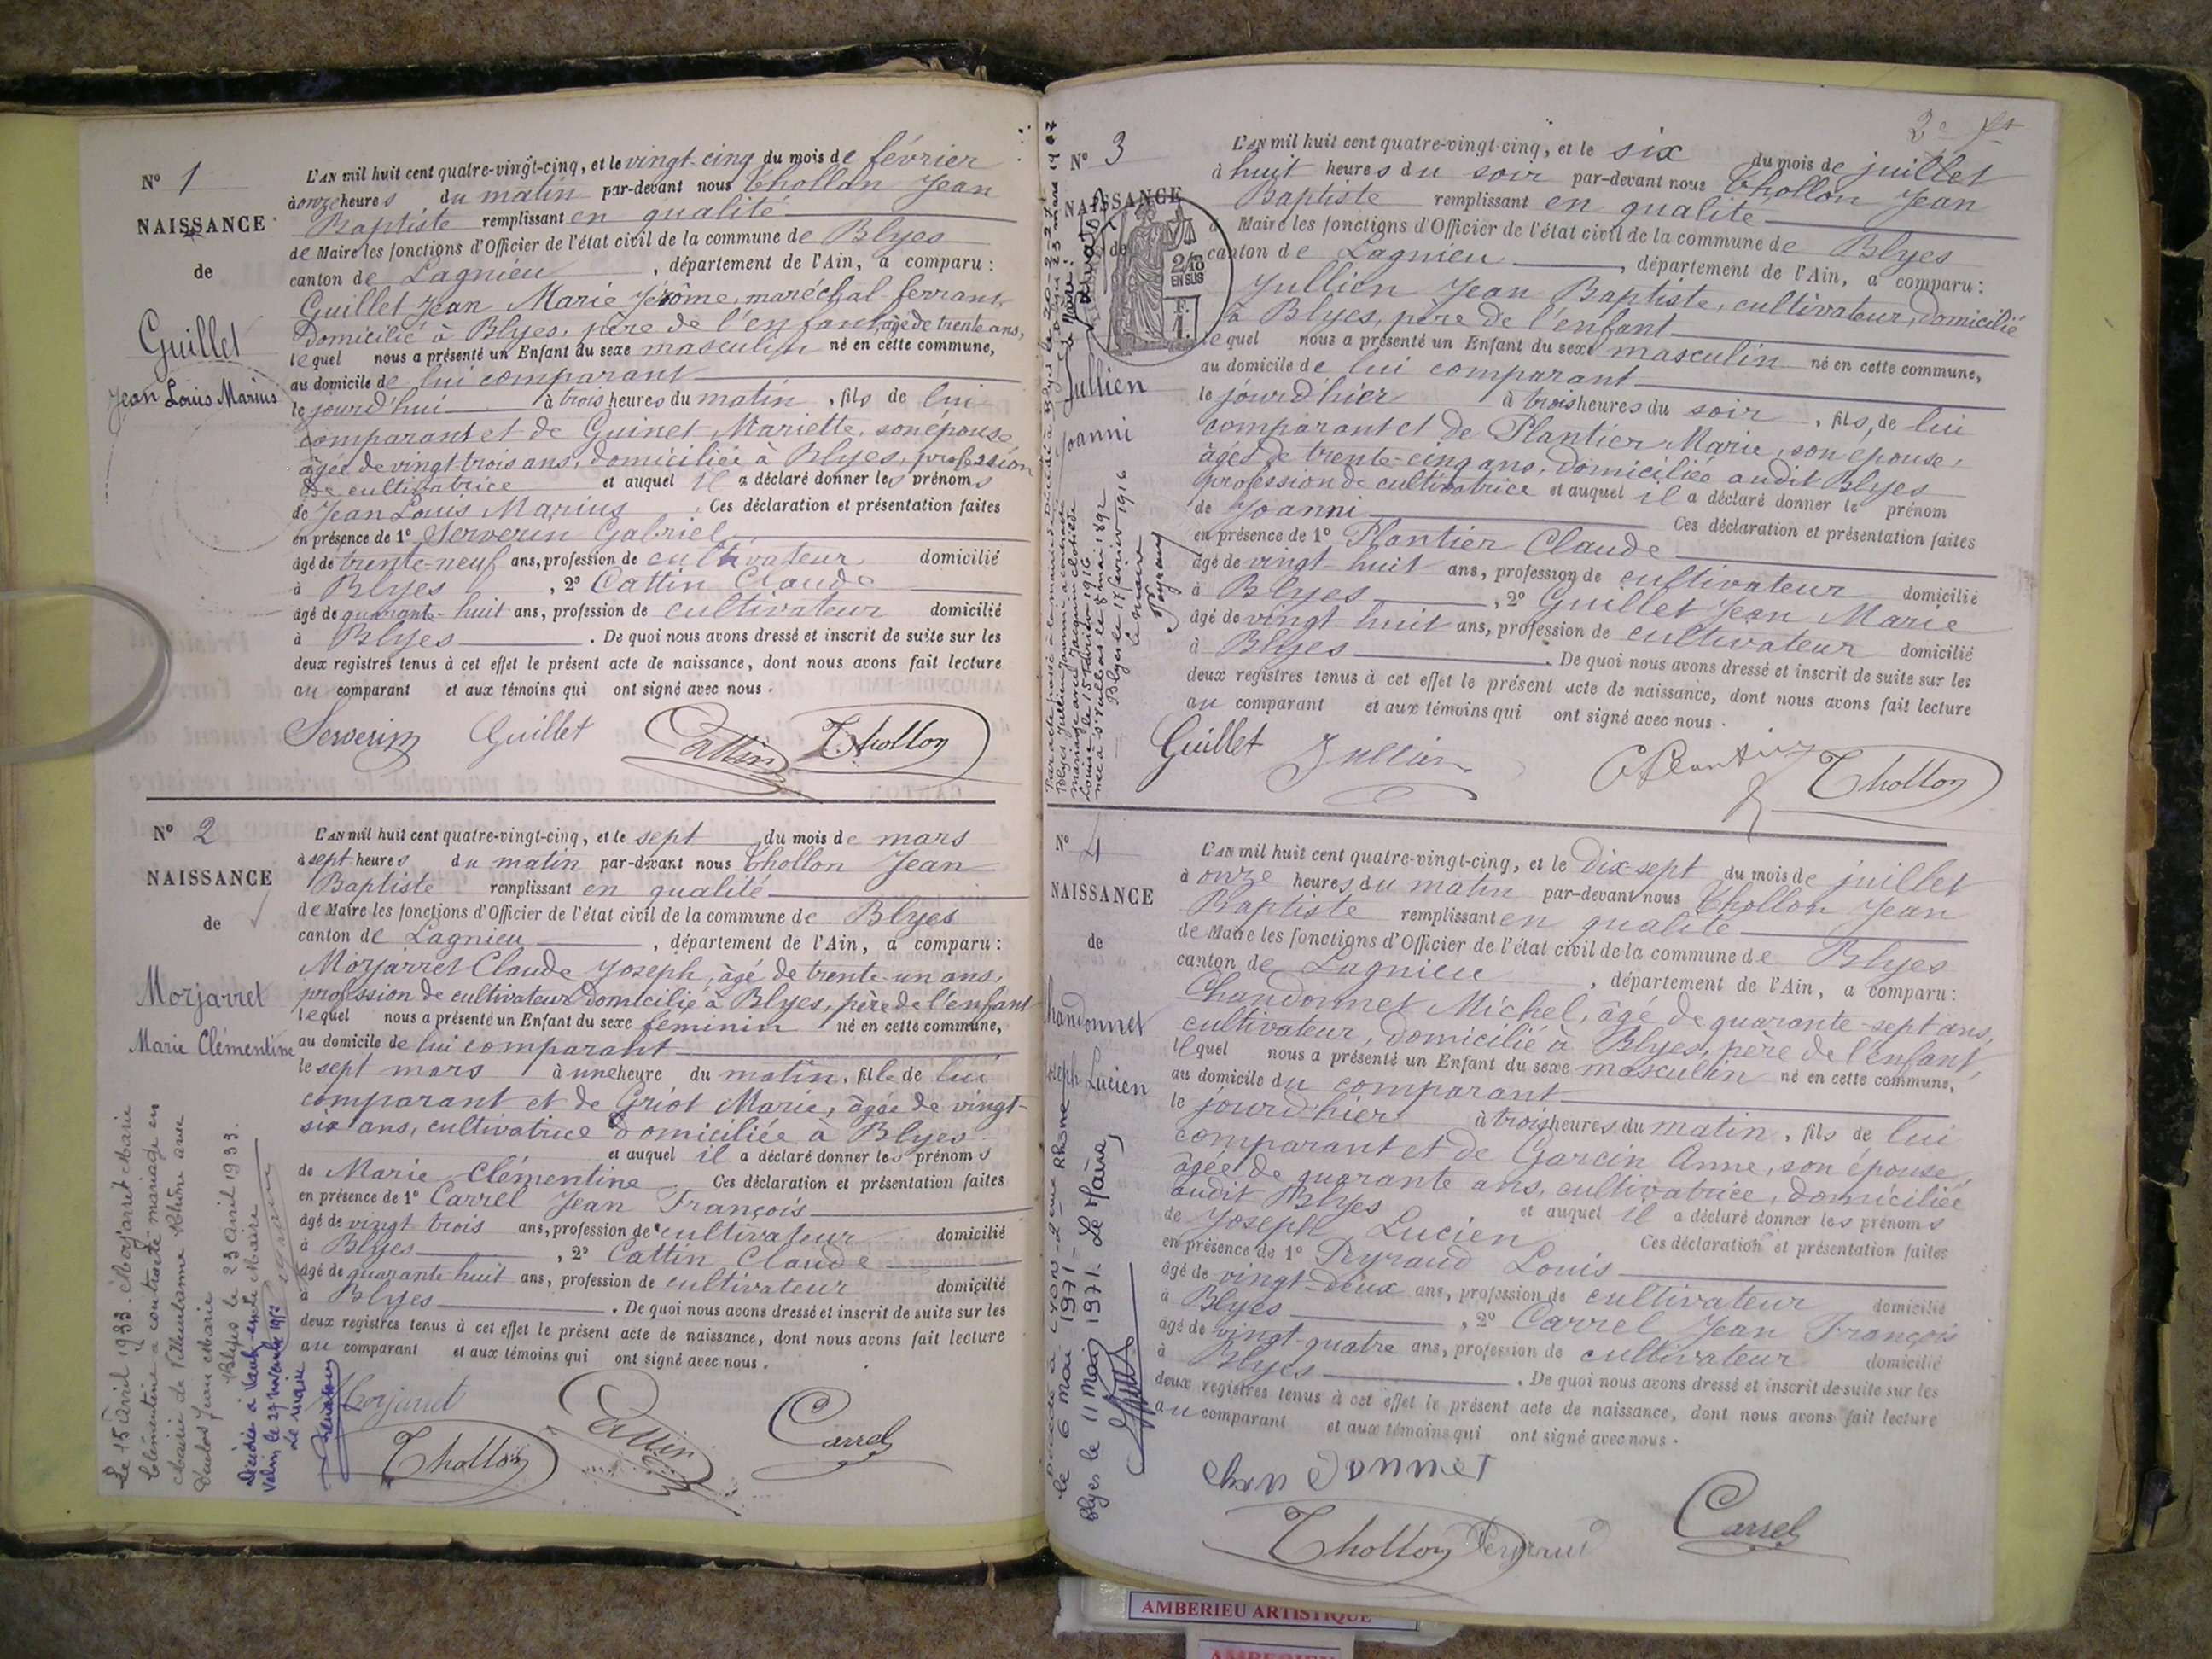 N° 1
NAISSANCE
de
Guillet
Jean Louis Marius
L'AN mil huit cent quatre-vingt-cinq, et le vingt-cinq du mois de février
à onze heures du matin par-devant nous Thollon Jean
Baptiste remplissant en qualité
de Maire les fonctions d'Officier de l'état civil de la commune de Blyes
canton de Lagnieu, département de l'Ain, a comparu :
Guillet Jean Marie Jérôme, maréchal ferrant,
domicilié à Blyes, père de l'enfant, âgé de trente ans,
lequel nous a présenté un Enfant du sexe masculin né en cette commune,
au domicile de lui comparant
le jourd'hui à trois heures du matin, fils de lui
comparant et de Guinet Mariette, son épouse
âgée de vingt-trois ans, domiciliée à Blyes, profession
de cultivatrice et auquel il a déclaré donner les prénoms
de Jean Louis Marius. Ces déclaration et présentation faites
en présence de 1° Serverin Gabriel
âgé de trente-neuf ans, profession de cultivateur domicilié
à Blyes, 2° Cattin Claude
âgé de quarante-huit ans, profession de cultivateur domicilié
à Blyes. De quoi nous avons dressé et inscrit de suite sur les
deux registres tenus à cet effet le présent acte de naissance, dont nous avons fait lecture
au comparant et aux témoins qui ont signé avec nous.
Serverin Guillet Cattin Thollon
N° 2
NAISSANCE
de
Morjarret
Marie Clémentine
L'AN mil huit cent quatre-vingt-cinq, et le sept du mois de mars
à sept heures du matin par-devant nous Thollon Jean
Baptiste remplissant en qualité
de Maire les fonctions d'Officier de l'état civil de la commune de Blyes
canton de Lagnieu, département de l'Ain, a comparu :
Morjarret Claude Joseph, âgé de trente-un ans,
profession de cultivateur domicilié à Blyes, père de l'enfant
lequel nous a présenté un Enfant du sexe féminin né en cette commune,
au domicile de lui comparant
le sept mars à une heure du matin, fille de lui
comparant et de Griot Marie, âgée de vingt-
six ans, cultivatrice domiciliée à Blyes
et auquel il a déclaré donner les prénoms
de Marie Clémentine. Ces déclaration et présentation faites
en présence de 1° Carrel Jean François
âgé de vingt trois ans, profession de cultivateur domicilié
à Blyes, 2° Cattin Claude
âgé de quarante huit ans, profession de cultivateur domicilié
à Blyes. De quoi nous avons dressé et inscrit de suite sur les
deux registres tenus à cet effet le présent acte de naissance, dont nous avons fait lecture
au comparant et aux témoins qui ont signé avec nous.
Morjarret
Thollon Cattin Carrel
Le 15 avril 1933 Morjarret Marie
Clémentine a contracté mariage en
Mairie de Villeurbanne Rhône avec
Jean Marie
Blyes le 23 avril 1933.
Maire
Décédée à Vaulx-en-
Velin le 27 novembre 1957
Le maire
N° 3
NAISSANCE
de
Jullien
Joanni
2/10
EN SUS
2e ft
L'AN mil huit cent quatre-vingt-cinq, et le six du mois de juillet
à huit heures du soir par-devant nous Thollon Jean
Baptiste remplissant en qualité
de Maire les fonctions d'Officier de l'état civil de la commune de Blyes
canton de Lagnieu, département de l'Ain, a comparu :
Jullien Jean Baptiste, cultivateur, domicilié
à Blyes, père de l'enfant
lequel nous a présenté un Enfant du sexe masculin né en cette commune,
au domicile de lui comparant
le jourd'hier à trois heures du soir, fils, de lui
comparant et de Plantier Marie, son épouse,
âgée de trente-cinq ans, domiciliée audit Blyes
profession de cultivatrice et auquel il a déclaré donner le prénom
de Joanni Ces déclaration et présentation faites
en présence de 1° Plantier Claude
âgé de vingt huit ans, profession de cultivateur domicilié
à Blyes, 2° Guillet Jean Marie
âgé de vingt huit ans, profession de cultivateur domicilié
à Blyes. De quoi nous avons dressé et inscrit de suite sur les
deux registres tenus à cet effet le présent acte de naissance, dont nous avons fait lecture
au comparant et aux témoins qui ont signé avec nous.
Guillet Jullien C Plantier Thollon
Blyes Jullien Joanni a contracté
mariage avec Jacquin Clotilde
Louise le 15 février 1916
Blyes le 17 février 1916
Le maire
Peyraud
N° 4
NAISSANCE
de
Chandonnet
Joseph Lucien
L'AN mil huit cent quatre-vingt-cinq, et le dix-sept du mois de juillet
à onze heures du matin par-devant nous Thollon Jean
Baptiste remplissant en qualité
de Maire les fonctions d'Officier de l'état civil de la commune de Blyes
canton de Lagnieu, département de l'Ain, a comparu :
Chandonnet Michel, âgé de quarante-sept ans,
cultivateur, domicilié à Blyes, père de l'enfant,
lequel nous a présenté un Enfant du sexe masculin né en cette commune,
au domicile du comparant
le jourd'hier à trois heures du matin, fils de lui
comparant et de Garcin Anne, son épouse,
âgée de quarante ans, cultivatrice, domiciliée
audit Blyes et auquel il a déclaré donner les prénoms
de Joseph Lucien Ces déclaration et présentation faites
en présence de 1° Peyraud Louis
âgé de vingt-deux ans, profession de cultivateur domicilié
à Blyes, 2° Carrel Jean François
âgé de vingt-quatre ans, profession de cultivateur domicilié
à Blyes. De quoi nous avons dressé et inscrit de suite sur les
deux registres tenus à cet effet le présent acte de naissance, dont nous avons fait lecture
au comparant et aux témoins qui ont signé avec nous.
Chandonnet
Thollon Peyraud Carrel
Décédé à LYON 2ème Rhône
le 6 mai 1971
Blyes le 11 Mai 1971. Le Maire,
AMBERIEU ARTISTIQUE
AMBERIEU